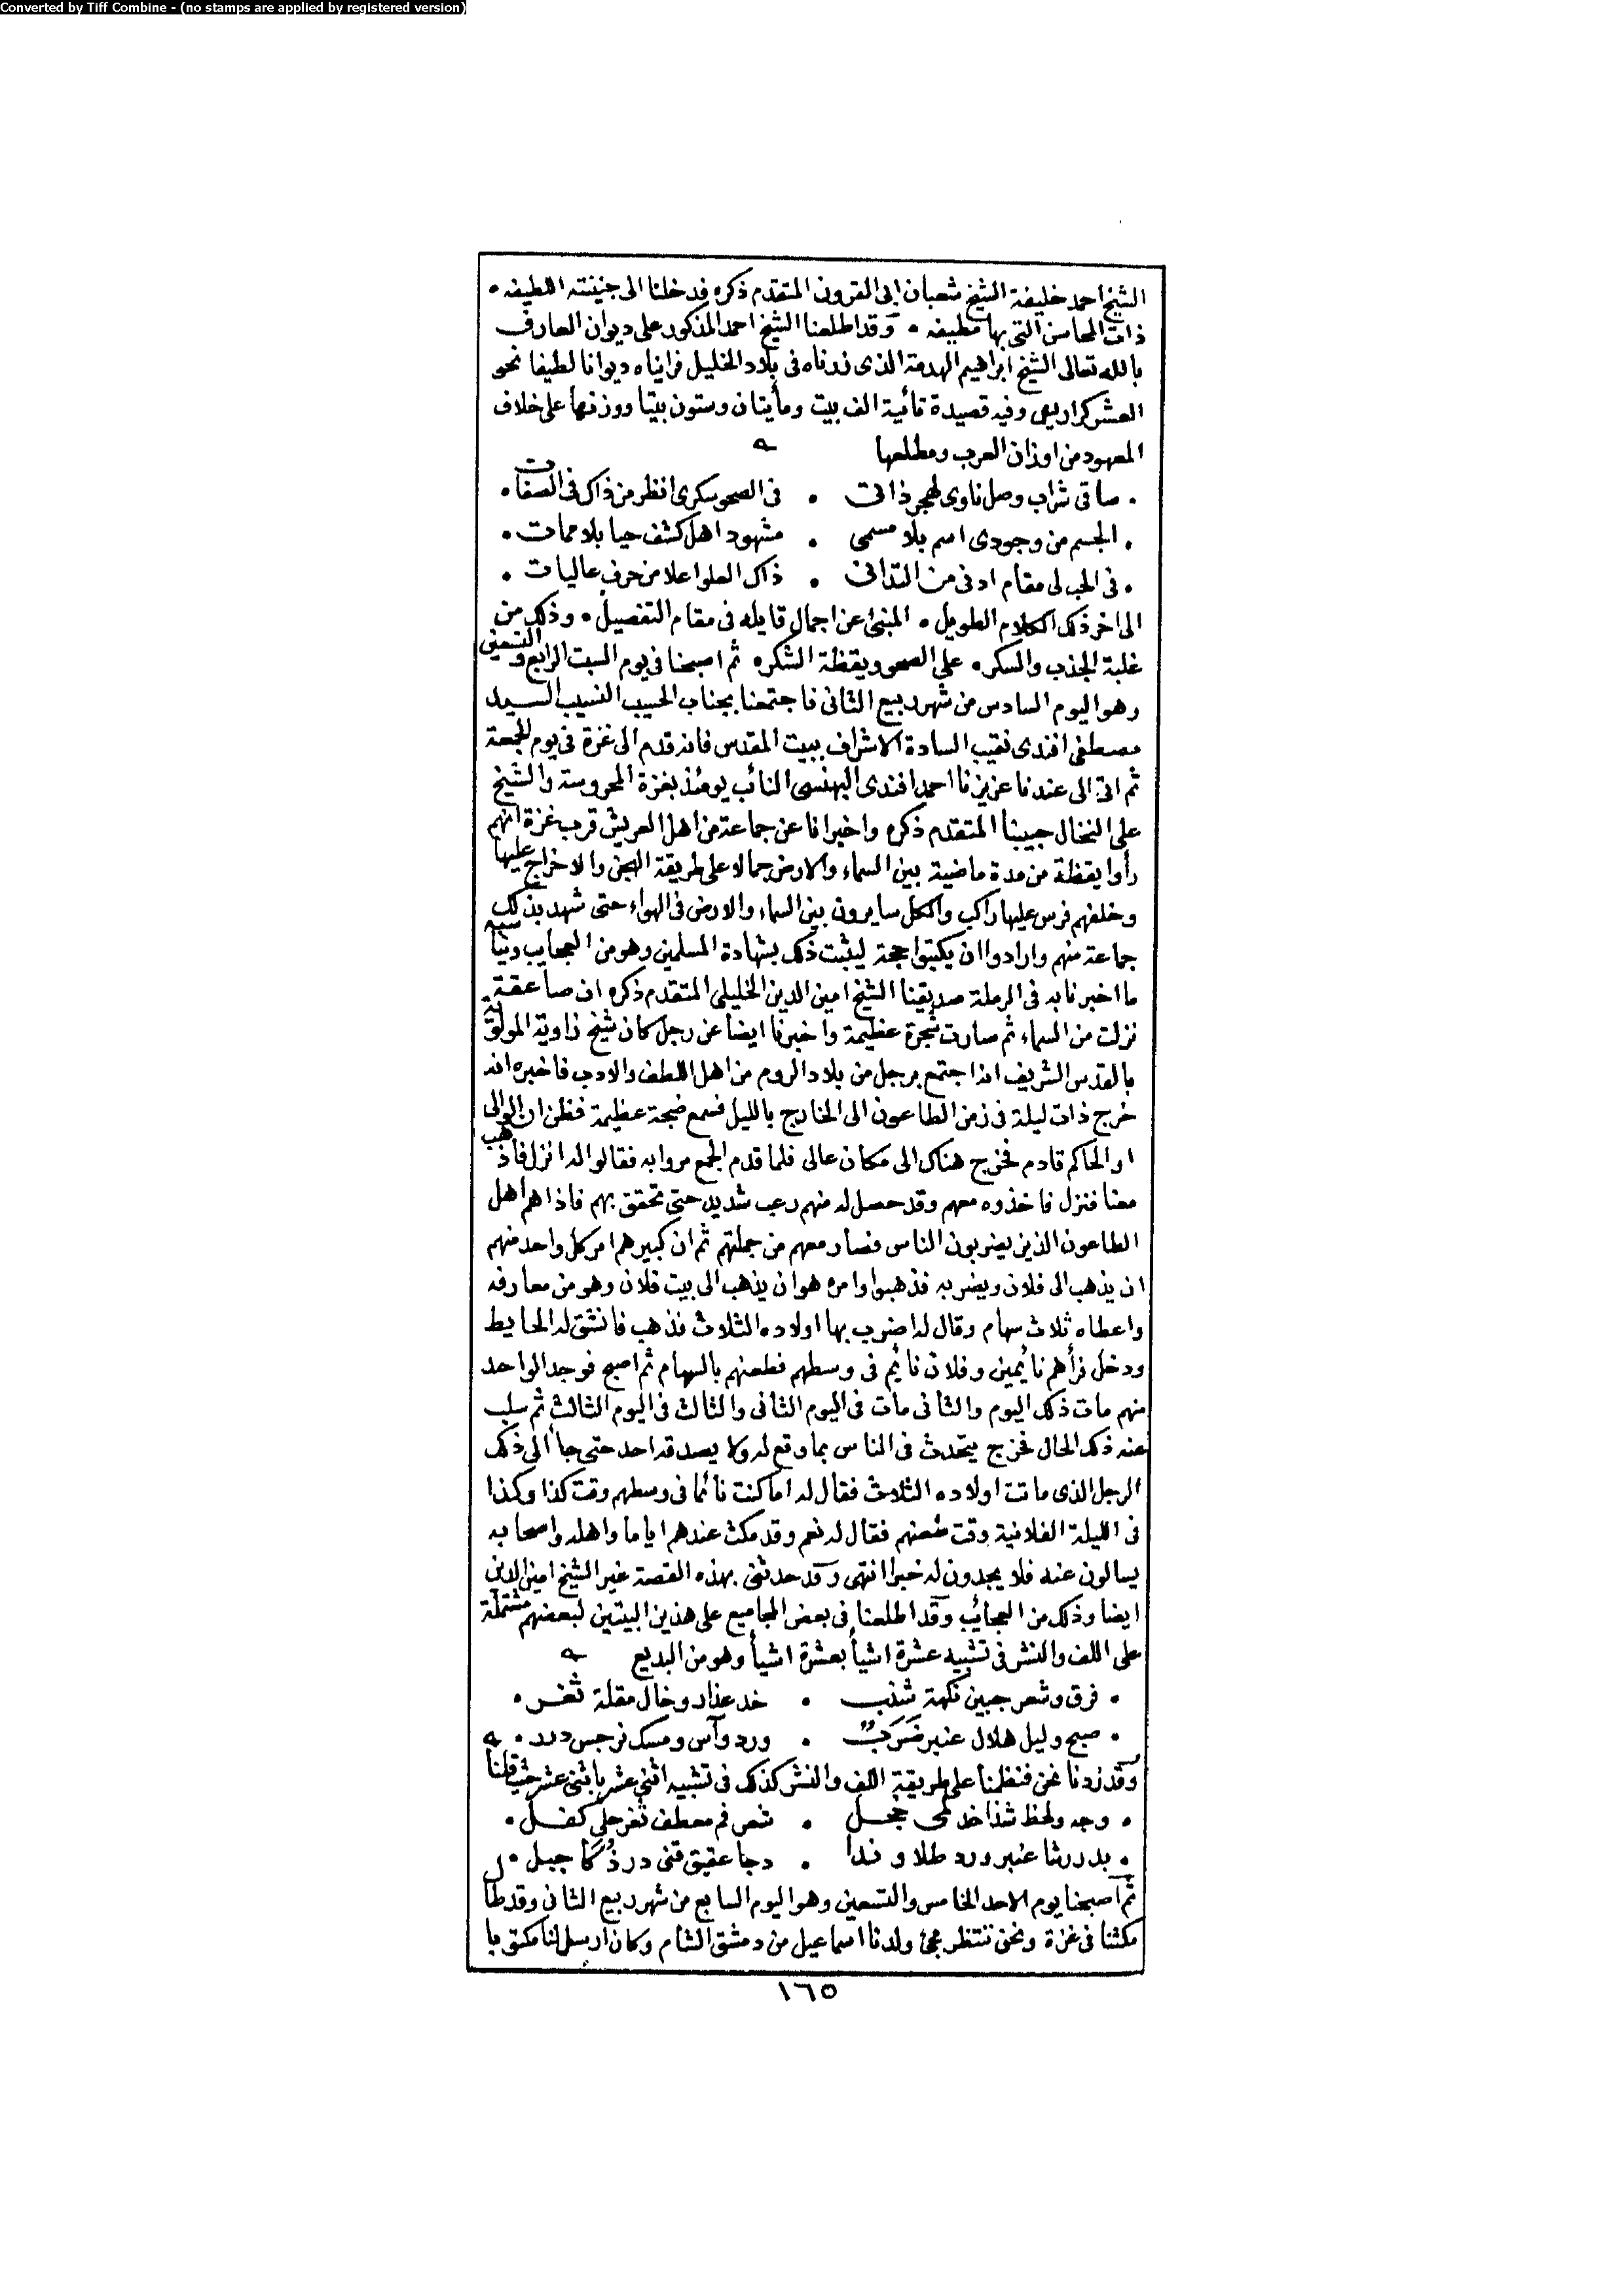 Converted by Tiff Combine - (no stamps are applied by registered version)
الشيخ احمد خليفة الشيخ شعبان ابى القرون المتقدم ذكره فدخلنا الى جنينته اللطيفه •
ذات المحاسن التى بها مطيفه • وقد اطلعنا الشيخ احمد المذكور على ديوان العارف
بالله تعالى الشيخ ابراهيم الهدمة الذى زرناه فى بلاد الخليل فرايناه ديوانا لطيفا نحو
العشر كراريس وفيه قصيدة تائية الف بيت ومأيتان وستون بيتا ووزنها على خلاف
المعهود من اوزان العرب ومطلعها
• ساقى شراب وصل ناوى لهجر ذاتى • فى الصحو سكرى انظر من ذاك فى الصفات •
• الجسم من وجودى اسم بلا مسمى • مشهود اهل كشف حيا بلا ممات •
• فى الحب لى مقام ادنى من التدانى • ذاك العلوا علا من حرف عاليات •
الى اخر ذلك الكلام الطويل • المبنئ عن اجمال قايله فى مقام التفصيل • وذلك من
غلبة الجذب والسكر • على الصحو ويقظة الشكره ثم اصبحنا فى يوم السبت الرابع والتسعين
وهو اليوم السادس من شهر ربيع الثانى فاجتمعنا بجناب الحسيب النسيب السيد
مصطفى افندى نقيب السادة الاشراف ببيت المقدس فانه قدم الى غزة فى يوم الجمعة
ثم اتى الى عندنا عزيزنا احمد افندى البهنسى النائب يومئذ بغزة المحروسة والشيخ
على النخال حبيبنا المتقدم ذكره واخبرانا عن جماعة من اهل العريش قرب غزة انهم
رأوا يقظة من مدة ماضية بين السماء والارض جمالا على طريقة الهجن والاخراج عليها
وخلفهم فرس عليها راكب والكل سايرون بين السماء والارض فى الهواء حتى شهد بذلك
جماعة منهم وارادوا ان يكتبوا حجة ليثبت ذلك بشهادة المسلمين وهو من العجايب ويناسبه
ما اخبرنا به فى الرملة صديقنا الشيخ امين الدين الخليلى المتقدم ذكره ان صاعقة
نزلت من السماء ثم صارت شجرة عظيمة واخبرنا ايضا عن رجل كان شيخ زاوية المولوية
بالقدس الشريف انه اجتمع برجل من بلاد الروم من اهل اللطف والادب فاخبره انه
خرج ذات ليلة فى زمن الطاعون الى الخارج بالليل فسمع ضجة عظيمة فظن ان الوالى
او الحاكم قادم فخرج هناك الى مكان عالى فلما قدم الجمع مروا به فقالوا له انزل فاذهب
معنا فنزل فاخذوه معهم وقد حصل له منهم رعب شديد حتى تحقق بهم فاذا هم اهل
الطاعون الذين يضربون الناس فصار معهم من جملتهم ثم ان كبيرهم امر كل واحد منهم
ان يذهب الى فلان ويضربه فذهبوا وامره هو ان يذهب الى بيت فلان وهو من معارفه
واعطاه ثلاث سهام وقال له اضرب بها اولاده الثلاث فذهب فانشق له الحايط
ودخل فرأهم نائمين وفلان نائم فى وسطهم فطعنهم بالسهام ثم اصبح فوجد الواحد
منهم مات ذلك اليوم والثانى مات فى اليوم الثانى والثالث فى اليوم الثالث ثم سلب
عنه ذلك الحال فخرج يتحدث فى الناس بما وقع له ولا يصدقه احد حتى جاء الى ذلك
الرجل الذى ماتت اولاده الثلاث فقال له اما كنت نائما فى وسطهم وقت كذا وكذا
فى الليلة الفلانية وقت طعنهم فقال له نعم وقد مكث عندهم اياما واهله واصحابه
يسالون عنه فلا يجدون له خبرا انتهى وقد حدثنى بهذه القصة غير الشيخ امين الدين
ايضا وذلك من العجائب وقد اطلعنا فى بعض المجاميع على هذين البيتين لبعضهم مشتملة
على اللف والنشر فى تشبيه عشرة اشيأ بعشرة اشيأ وهو من البديع
• فرق وشعر جبين نكهة شنب • خد عذار وخال مقلة ثغر •
• صبح وليل هلال عنبر ضَرَبٌ • ورد وآس ومسك نرجس درر •
وقد زدنا نحن فنظمنا على طريقة اللف والنشر كذلك فى تشبيه اثنى عشر باثنى عشر حيث قلنا
• وجه ولحظ شذا خد لمى خجل • شعر فم معطف ثغر حلى كفل •
• بدر رشا عنبر ورد طلا وندا • دجا عقيق قنى در ذكا جبل •
ثم اصبحنا يوم الاحد الخامس والتسعين وهو اليوم السابع من شهر ربيع الثانى وقد طال
مكثنا فى غزة ونحن ننتظر مجئ ولدنا اسماعيل من دمشق الشام وكان ارسل لنا مكتوبا
١٦٥